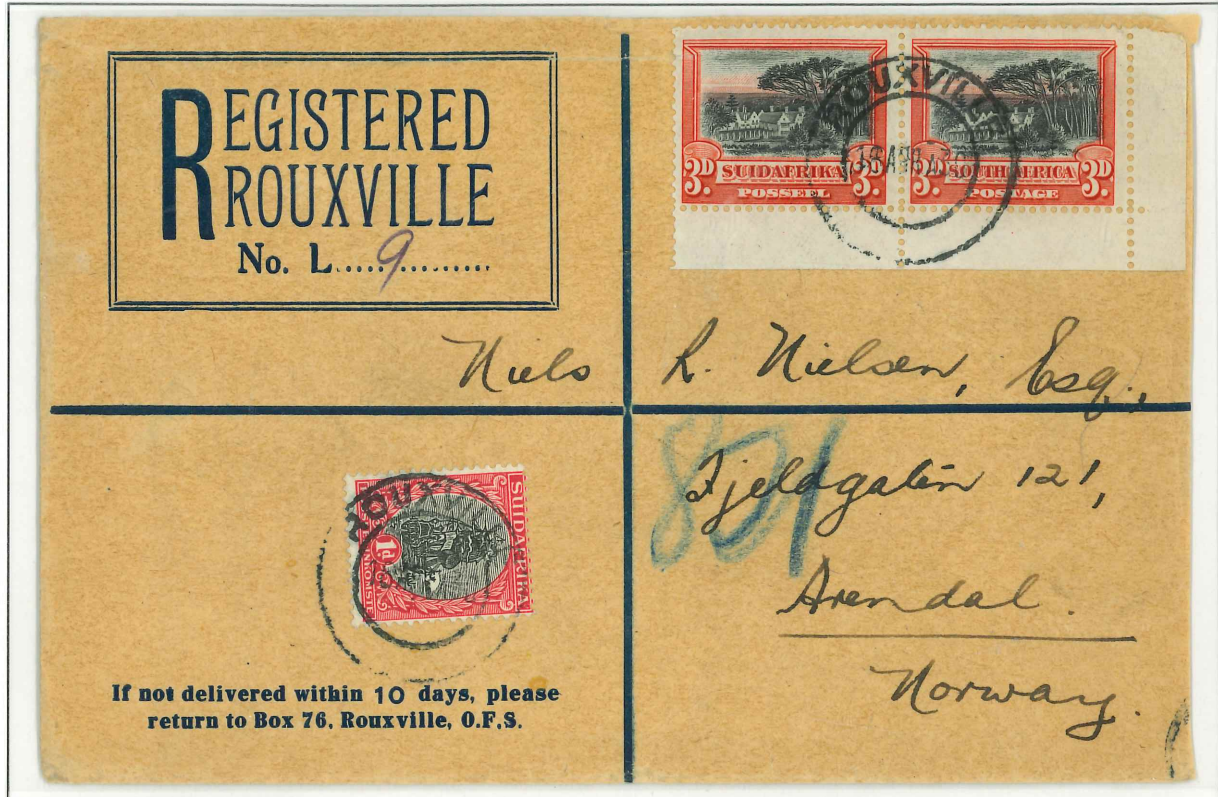 REGISTERED
ROUXVILLE
No. L.....9...............
3D SUIDAFRIKA 3D
POSSEEL
3D SOUTH AFRICA 3D
POSTAGE
ROUXVILLE
Niels R. Nielsen, Esq.,
821
Fjeldgaten 121,
Arendal.
Norway.
SUIDAFRIKA
1d.
ROUX
If not delivered within 10 days, please
return to Box 76, Rouxville, O.F.S.